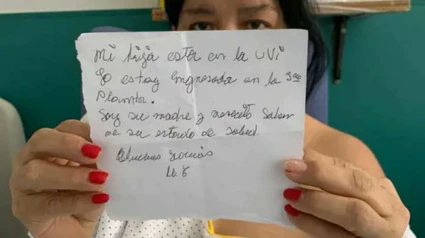 Mi hija está en la UVi
Yo estoy Ingresada en la 3ra
Planta.
Soy su madre y necesito saber
de su estado de salud.
Muchas Gracias